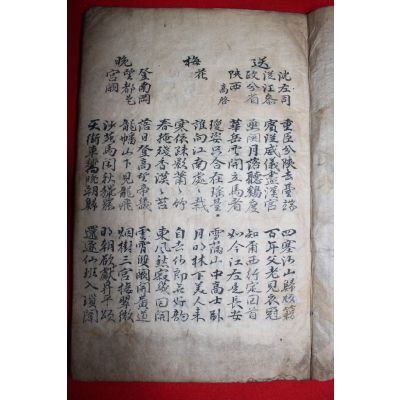 送
沈左司
從汪參
政分省
陝西 高啓
重臣分陝去臺端 四塞河山歸版籍
賓從威儀盡漢官 百年父老見衣冠
函關月落聽鷄度 知爾西行定回首
華岳雲開立馬看 如今江左是長安
梅
花
瓊姿只合在瑤臺 雪滿山中高士臥
誰向江南處〻栽 月明林下美人來
寒依疎影蕭〻竹 自去何郎無好韵
春掩殘香漠〻苔 東風愁寂幾回開
晚
登南岡
望都邑
宮闕
落日登高望帝畿 雲霄雙闕開黃道
龍蟠山下見龍飛 烟樹三宮接翠微
沙苑馬閑秋獵罷 明朝欲獻升平頌
天街車斂晚朝歸 還逐仙班入瑣闈